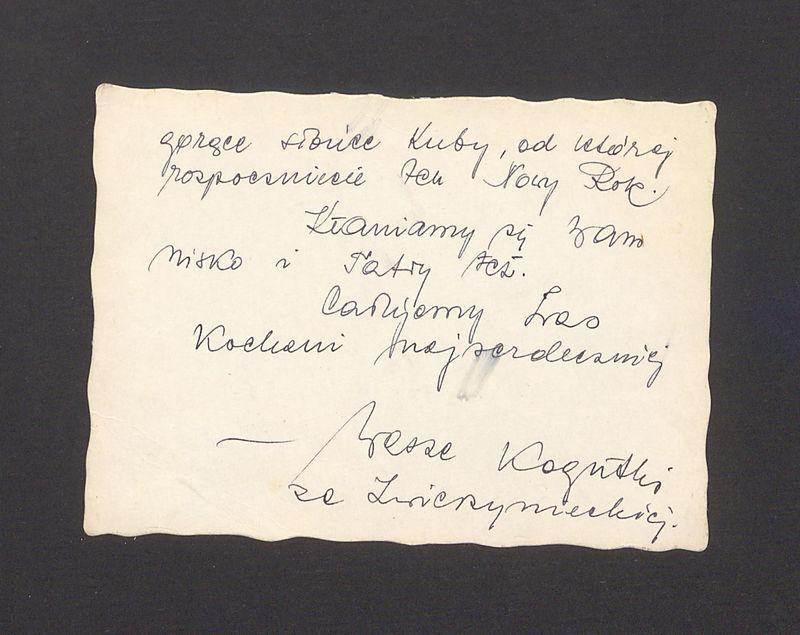 gorące słońce Kuby, od której
rozpoczniecie ten Nowy Rok.
Kłaniamy się Wam
nisko i Tatry też.
Całujemy Was
Kochani najserdeczniej
— Wasze Kogutki
ze Zwierzynieckiej.